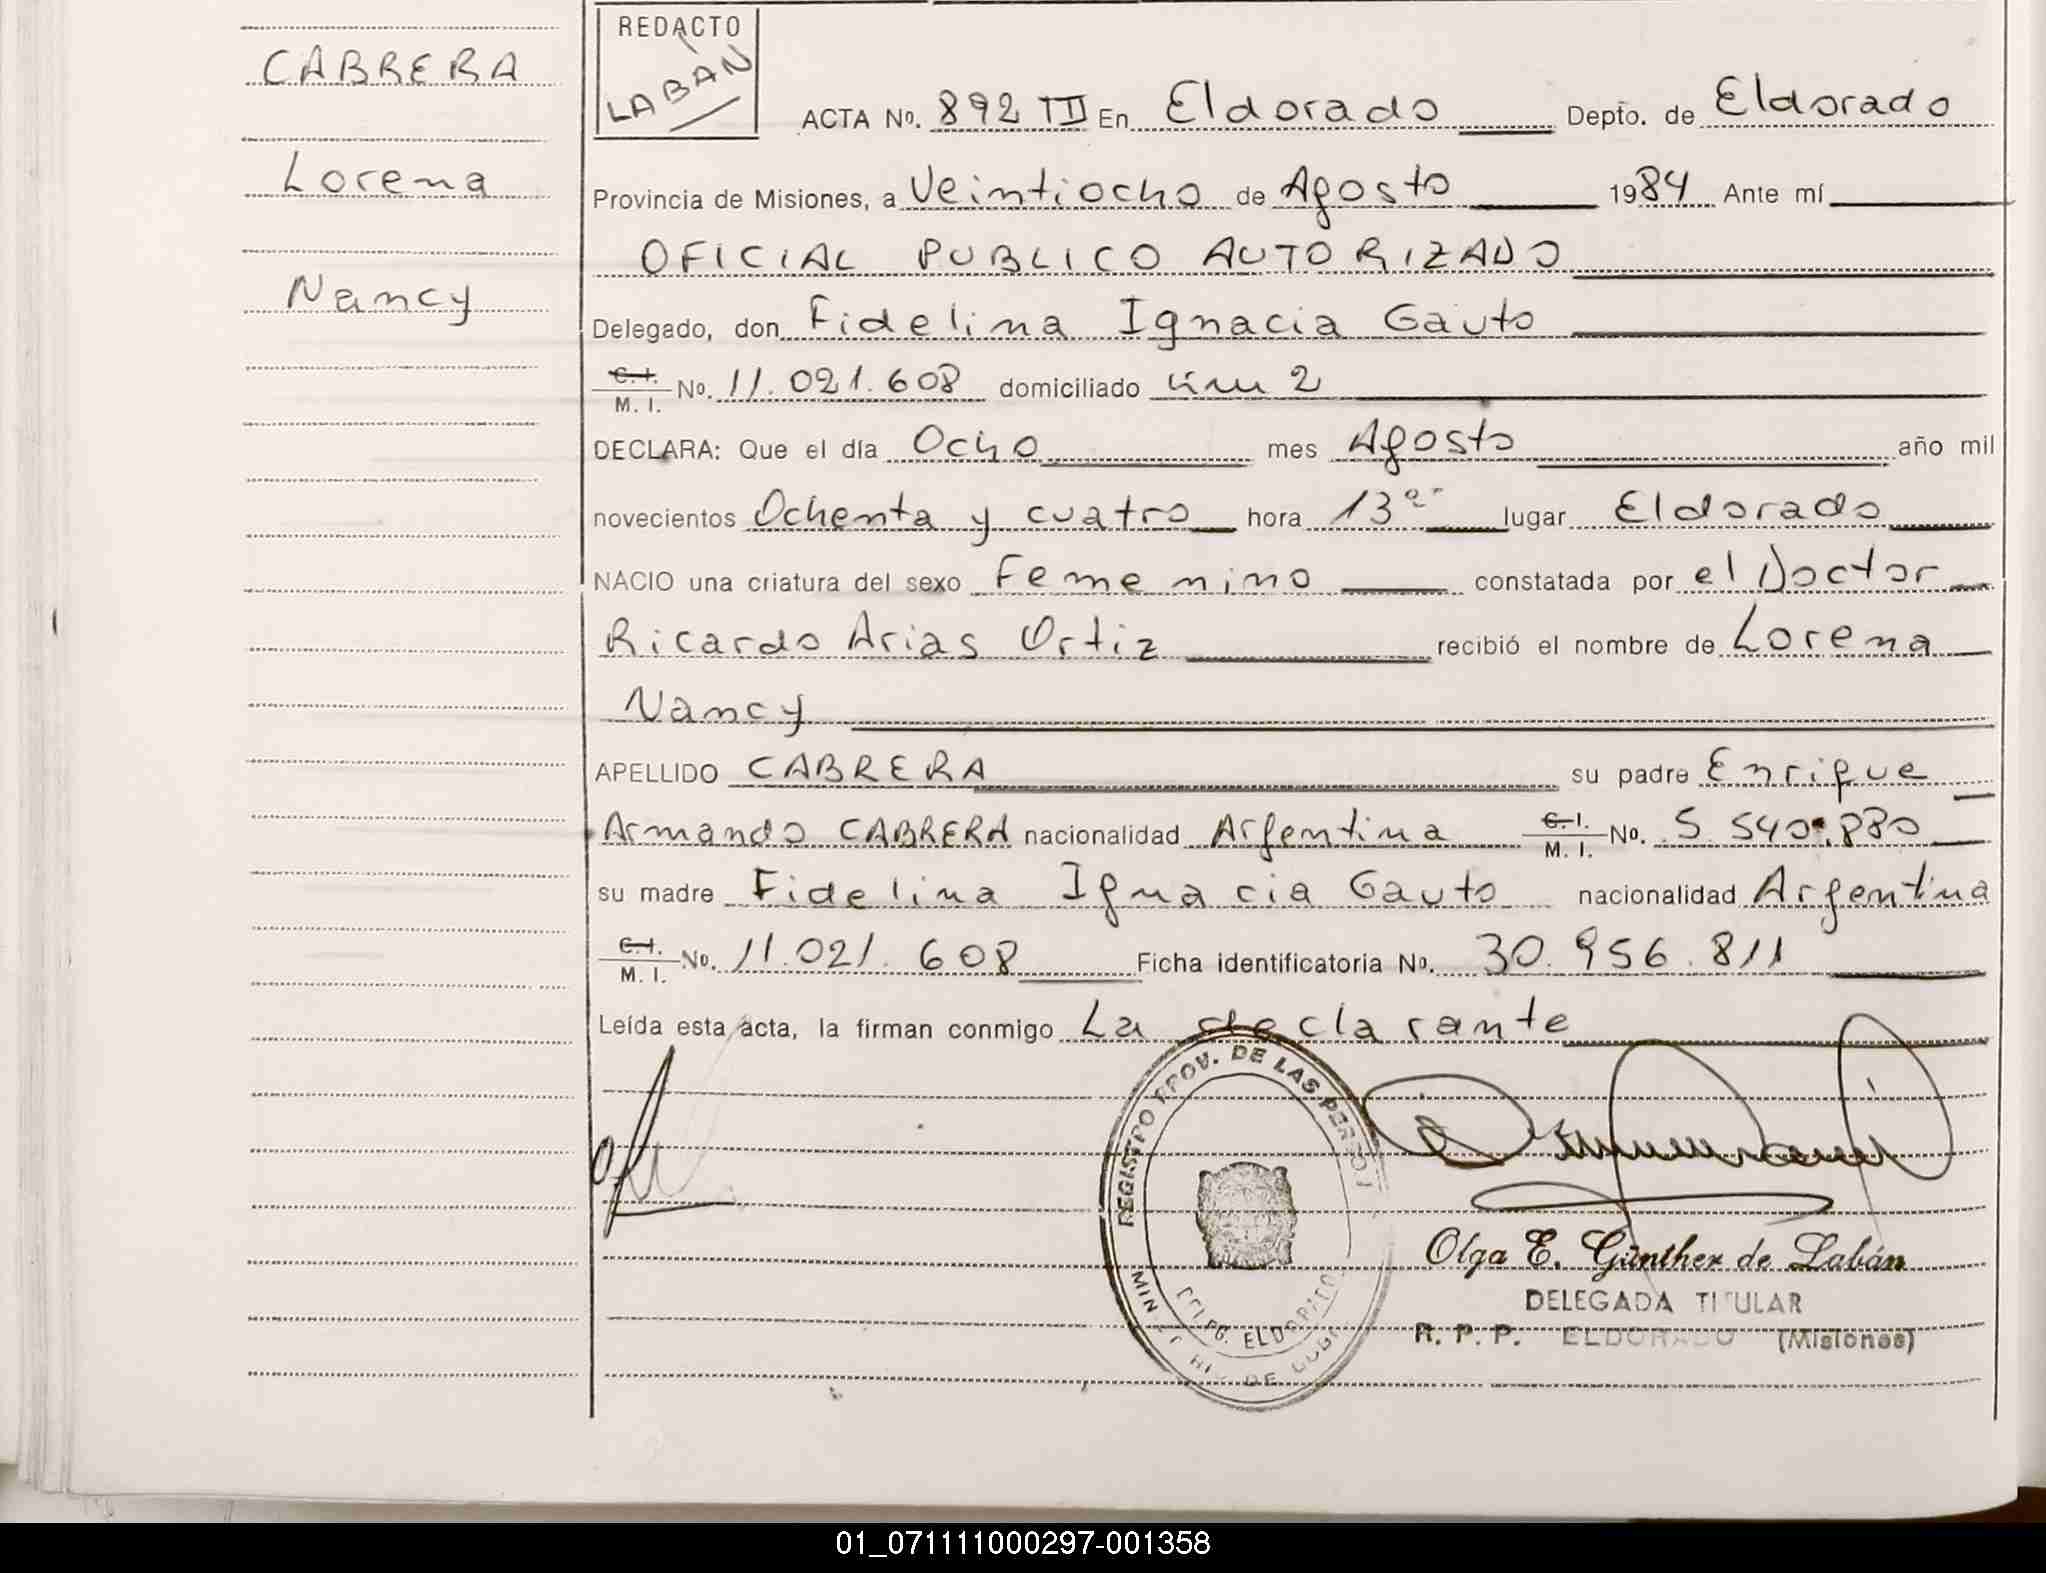 CABRERA
Lorena
Nancy
REDACTO
LABAN
ACTA Nº. 892 TII En Eldorado Depto. de Eldorado
Provincia de Misiones, a Veintiocho de Agosto 1984 Ante mí
OFICIAL PUBLICO AUTORIZADO
Delegado, don Fidelina Ignacia Gauto
C. I. M. I. Nº. 11.021.608 domiciliado km 2
DECLARA: Que el día Ocho mes Agosto año mil
novecientos Ochenta y cuatro hora 13 lugar Eldorado
NACIO una criatura del sexo Femenino constatada por el Doctor
Ricardo Arias Ortiz recibió el nombre de Lorena
Nancy
APELLIDO CABRERA su padre Enrique
Armando CABRERA nacionalidad Argentina C. I. M. I. Nº. 5.540.880
su madre Fidelina Ignacia Gauto nacionalidad Argentina
C. I. M. I. Nº. 11.021.608 Ficha identificatoria Nº. 30.956.811
Leída esta acta, la firman conmigo La declarante
REGISTRO PROV. DE LAS PERSO
DELEG. ELDORADO
Olga E. Günther de Labán
DELEGADA TITULAR
R. P. P. ELDORADO (Misiones)
01_071111000297-001358